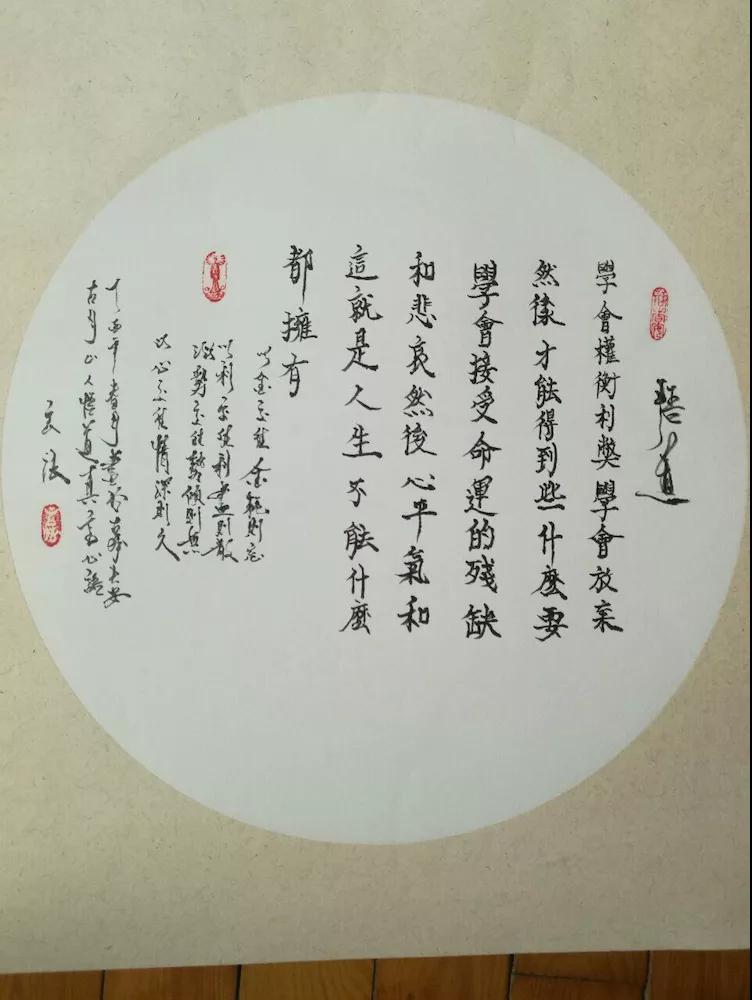 悟道
學會權衡利弊學會放棄
然後才能得到些什麼要
學會接受命運的殘缺
和悲哀然後心平氣和
這就是人生不能什麼
都擁有
以金交往金則忘
以利交往利盡則散
以勢交往勢傾則
以心交往情深則久
丁酉年春月書於古都長安
古月山人悟道真言心語